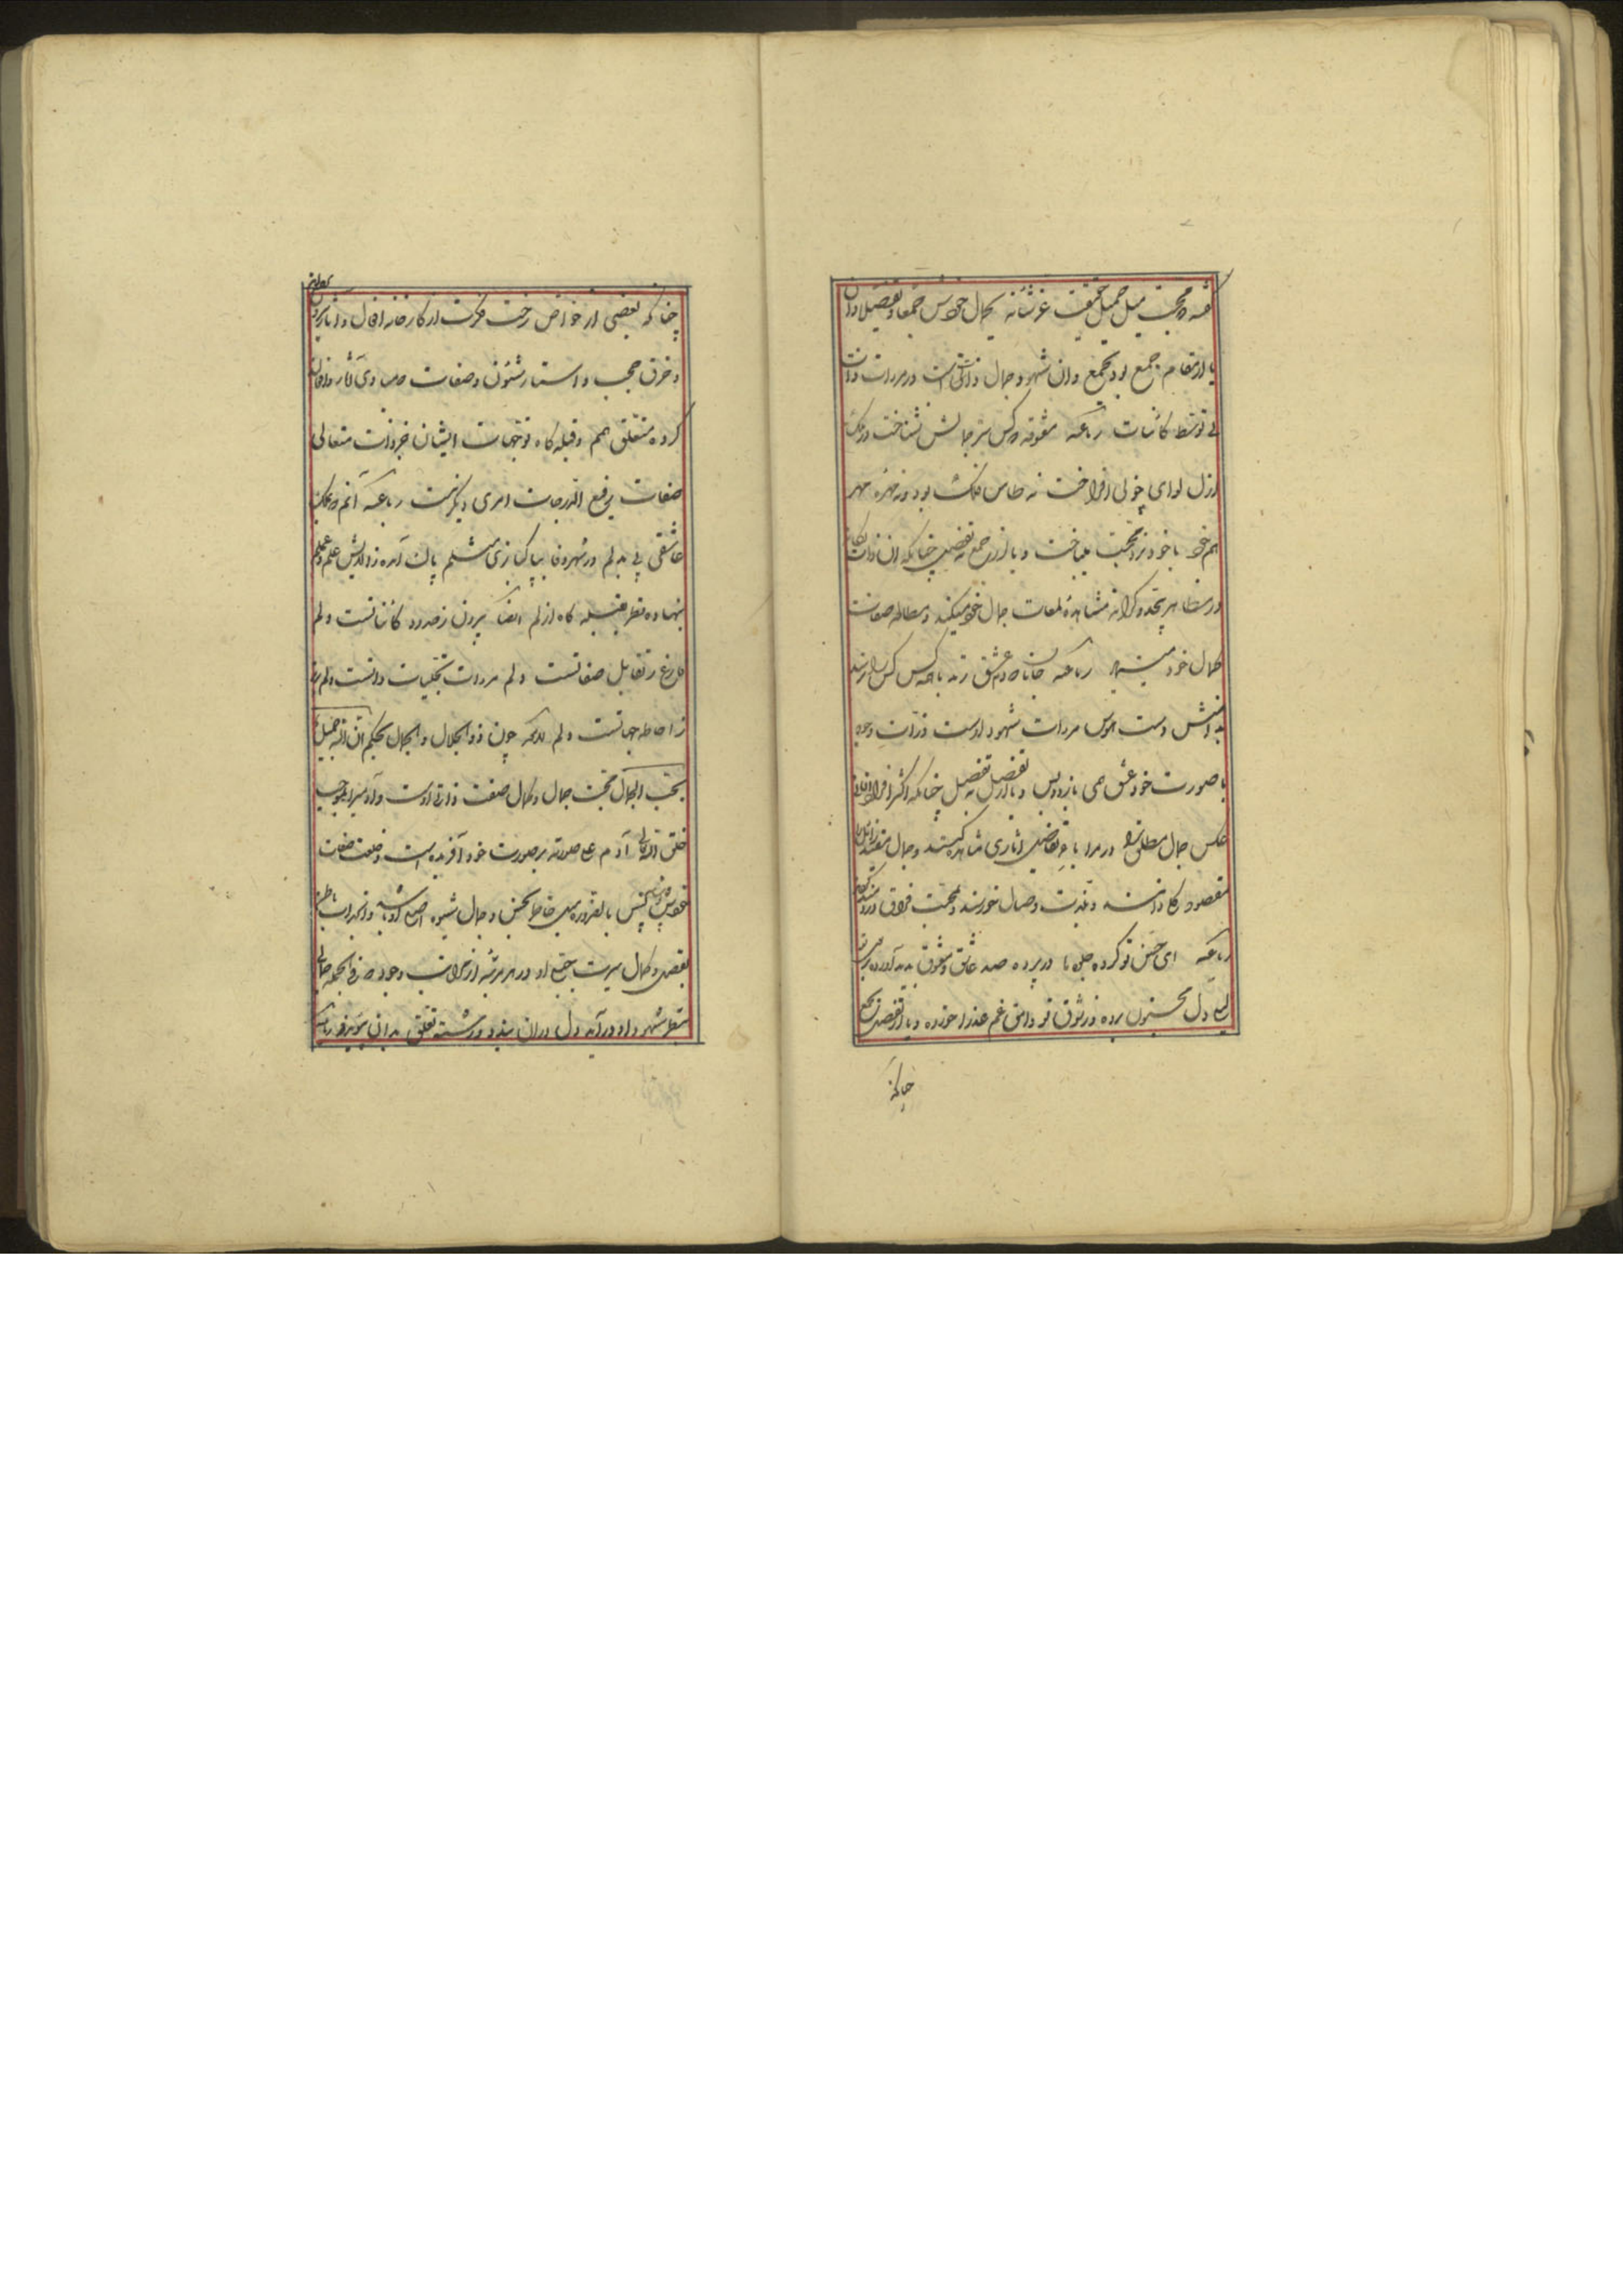 محبت میل جمیل حقیقی عز شأنه بجمال خودش جمعا و تفصیلا وان
یا از مقام جمع بود بجمع وان شهود جمال ذاتی است در مرات ذات
بی توسط کاینات رباعیه معشوقه که کس سر جمالش نشناخت در ملک
ازل لوای خوبی افراخت نه طاس فلک بود و نه مهره مهر
هم خود با خود نرد محبت میباخت و یا از جمع بتفصیل چنانکه ان ذات یکانه
در مظاهر بیحد و کرانه مشاهده لمعات جمال خود میکند و مطالعه صفات
کمال خود مینماید رباعیه جانان که دم عشق زند با همه کس کس را نرسد
بدامنش دست هوس مرات شهود اوست ذرات وجود
با صورت خود عشق همی بازد و بس و یا از تفصیل بتفصیل چنانکه اکثر افراد انسانی
عکس جمال مطلق را در مرایا تفاصیل اثاری مشاهده کنند و جمال مقید زایل را
مقصود کلی دانند و بلذت وصال خورسند و بمحنت فراق دردمند گردند
رباعیه ای حسن تو کرده جلوه‌ها در پرده صد عاشق و معشوق پدید آورده بر بوی تو
لیلی دل مجنون برده وز شوق تو وامق غم عذرا خورده و یا از تفصیل بجمع
چنانکه
چنانکه بعضی از خواص رخت فکرت از کارخانه افعال و اثار بیرون
و خرق حجب و استار شئون و صفات که مبادی اثار و افعالند
کرده متعلق همم و قبله کاه توجهات ایشان جز ذات متعالی
صفات رفیع الدرجات امری دیکر نیست رباعیه آنم که بملک
عاشقی بی بدلم در شهر وفا بپاکبازی مثلم پاک آمده ز الایش علم و عملم
بنهاده نظر بقبله کاه ازلم ایضا بیرون ز حدود کاینانست دلم
فارغ ز تقابل صفاتست دلم مرات تجلیات ذاتست دلم برتر
ز احاطه جهاتست دلم لایحه چون ذو الجلال و الجمال بحکم ان الله جمیل
یحب الجمال محبت جمال و کمال صفت ذاتی اوست و آدمیرا بموجب
خلق الله تعالی آدم علی صورته بر صورت خود آفریده است و خلعت صفات
خودش پوشانیده پس بالضروره میل خاطر بحسن و جمال شیوه اصلی او باشد و انجذاب باطن
بفضل و کمال سیرت جبلی او در هر مرتبه از مراتب وجود هر فی الجمله جمالی
بنظر شهود او در آید دل در ان بندد و رشته تعلق بدان پیوندد رباعیه